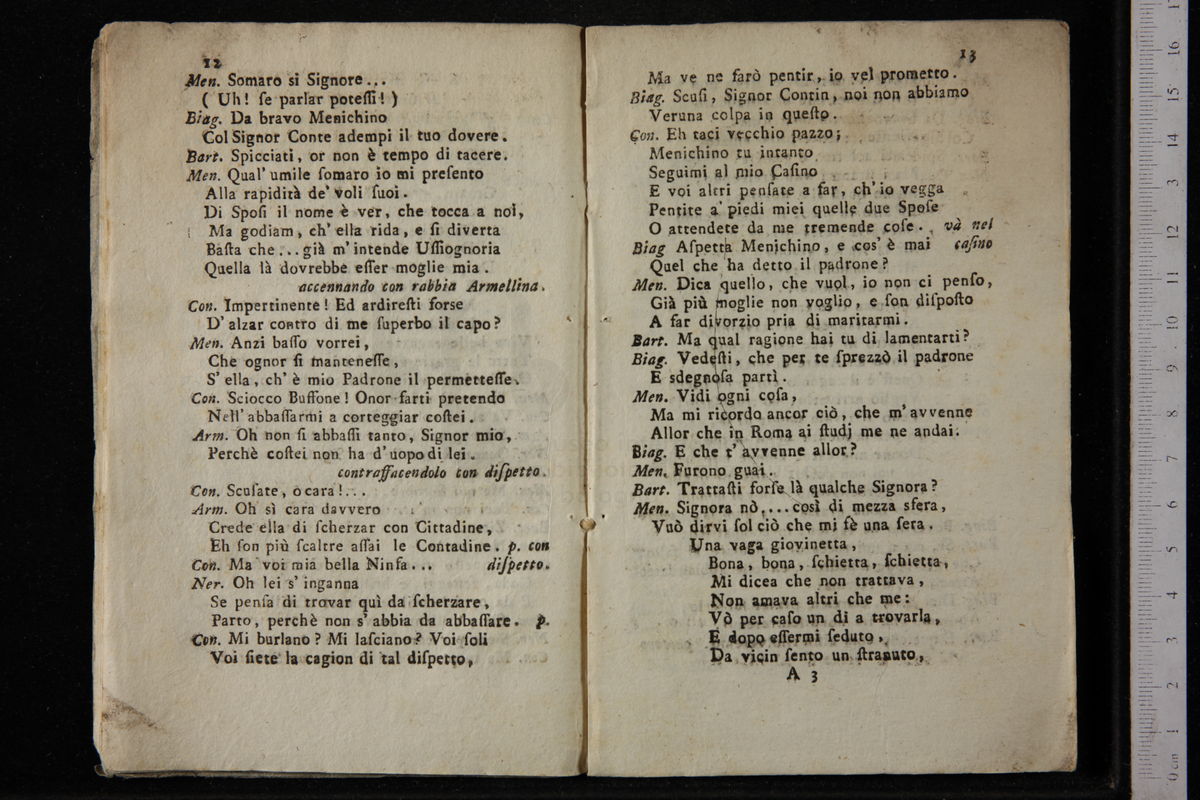 12
Men. Somaro si Signore...
( Uh! ſe parlar poteſſi! )
Biag. Da bravo Menichino
Col Signor Conte adempi il tuo dovere.
Bart. Spicciati, or non è tempo di tacere.
Men. Qual' umile ſomaro io mi preſento
Alla rapidità de' voli ſuoi.
Di Spoſi il nome è ver, che tocca a noi,
Ma godiam, ch' ella rida, e ſi diverta
Baſta che... già m' intende Uſſiognoria
Quella là dovrebbe eſſer moglie mia.
accennando con rabbia Armellina.
Con. Impertinente! Ed ardireſti forse
D' alzar contro di me ſuperbo il capo?
Men. Anzi baſſo vorrei,
Che ognor ſi manteneſſe,
S' ella, ch' è mio Padrone il permetteſſe.
Con. Sciocco Buffone! Onor farti pretendo
Nell' abbaſſarmi a corteggiar coſtei.
Arm. Oh non ſi abbaſſi tanto, Signor mio,
Perchè coſtei non ha d' uopo di lei.
contraffacendolo con diſpetto.
Con. Scuſate, o cara!...
Arm. Oh sì cara davvero
Crede ella di ſcherzar con Cittadine,
Eh ſon più ſcaltre aſſai le Contadine. p. con
Con. Ma voi mia bella Ninfa... diſpetto.
Ner. Oh lei s' inganna
Se penſa di trovar quì da ſcherzare,
Parto, perchè non s' abbia da abbaſſare. p.
Con. Mi burlano? Mi laſciano? Voi ſoli
Voi ſiete la cagion di tal diſpetto,
13
Ma ve ne farò pentir, io vel prometto.
Biag. Scuſi, Signor Contin, noi non abbiamo
Veruna colpa in queſto.
Con. Eh taci vecchio pazzo;
Menichino tu intanto
Seguimi al mio Caſino
E voi altri penſate a far, ch' io vegga
Pentite a' piedi miei quelle due Spoſe
O attendete da me tremende coſe. và nel
Biag Aſpetta Menichino, e cos' è mai caſino
Quel che ha detto il padrone?
Men. Dica quello, che vuol, io non ci penſo,
Già più moglie non voglio, e ſon diſpoſto
A far divorzio pria di maritarmi.
Bart. Ma qual ragione hai tu di lamentarti?
Biag. Vedeſti, che per te ſprezzò il padrone
E sdegnoſa partì.
Men. Vidi ogni coſa,
Ma mi ricordo ancor ciò, che m' avvenne
Allor che in Roma ai ſtudj me ne andai.
Biag. E che t' avvenne allor?
Men. Furono guai.
Bart. Trattaſti forſe là qualche Signora?
Men. Signora nò.... così di mezza sfera,
Vuò dirvi ſol ciò che mi fè una ſera.
Una vaga giovinetta,
Bona, bona, ſchietta, ſchietta,
Mi dicea che non trattava,
Non amava altri che me:
Vò per caſo un dì a trovarla,
E dopo eſſermi ſeduto,
Da vicin ſento un ſtranuto,
A 3
0 cm 1 2 3 4 5 6 7 8 9 10 11 12 13 14 15 16